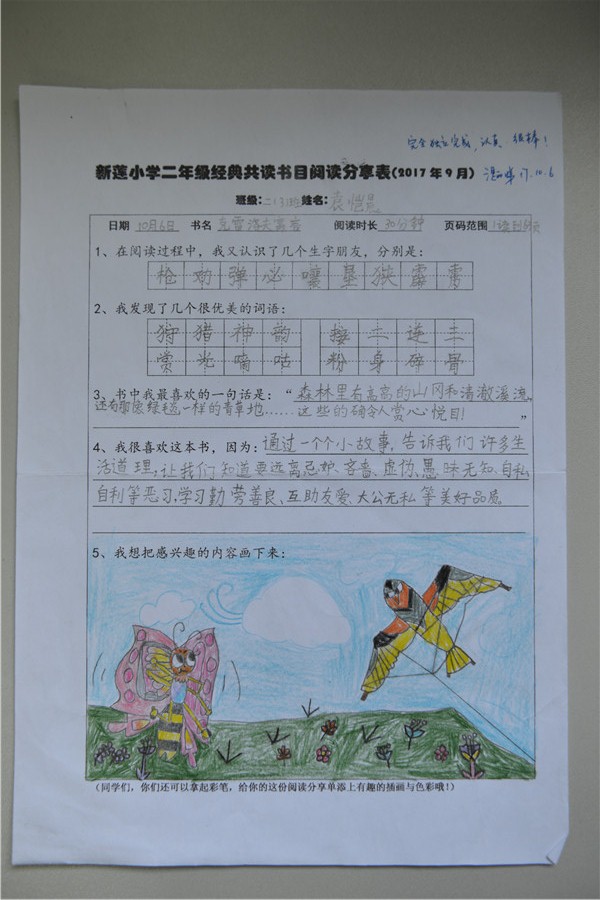 完全独立完成，认真，很棒！
新莲小学二年级经典共读书目阅读分享表(2017年9月) 17.10.6
班级：二(3)班 姓名：袁恺
日期 10月6日 书名 克雷洛夫寓言 阅读时长 30分钟 页码范围
1、在阅读过程中，我又认识了几个生字朋友，分别是：
枪 劝 弹 必 嚷 垦 狭 霹
2、我发现了几个很优美的词语：
狩 猎 神 韵 接 二 连 三
赏 光 嘀 咕 粉 身 碎 骨
3、书中我最喜欢的一句话是：“森林里有高高的山冈和清澈溪流，
还有那像绿毯一样的青草地……这些的确令人赏心悦目！”
4、我很喜欢这本书，因为：通过一个个小故事，告诉我们许多生
活道理，让我们知道要远离忌妒、吝啬、虚伪、愚昧无知、自私
自利等恶习，学习勤劳善良、互助友爱、大公无私等美好品质
5、我想把感兴趣的内容画下来：
(同学们，你们还可以拿起彩笔，给你的这份阅读分享单添上有趣的插画与色彩哦！)